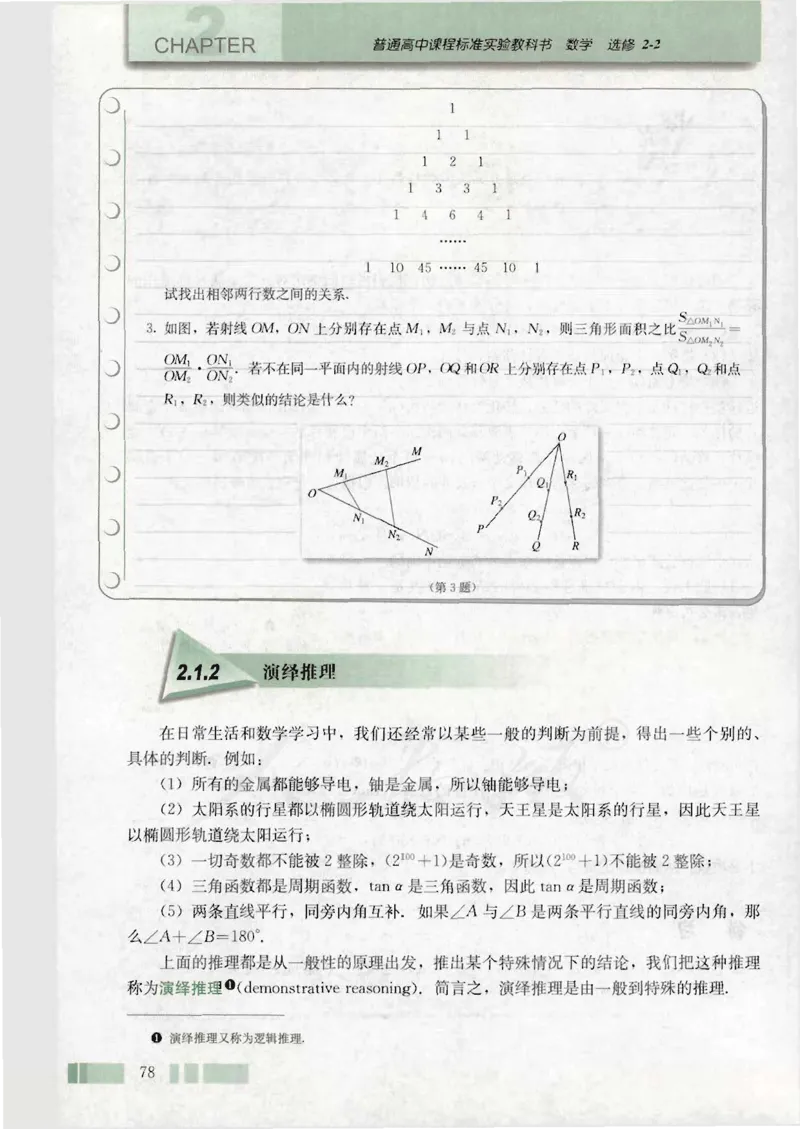 2
CHAPTER
普通高中课程标准实验教科书 数学 选修 2-2
1
1 1
1 2 1
1 3 3 1
1 4 6 4 1
……
1 10 45 …… 45 10 1
试找出相邻两行数之间的关系.
3. 如图，若射线 OM，ON 上分别存在点 M₁，M₂ 与点 N₁，N₂，则三角形面积之比 S△OM₁N₁/S△OM₂N₂ =
OM₁/OM₂ · ON₁/ON₂. 若不在同一平面内的射线 OP，OQ 和 OR 上分别存在点 P₁，P₂，点 Q₁，Q₂ 和点
R₁，R₂，则类似的结论是什么?
O M₁ M₂ M N₁ N₂ N
O P₁ P₂ P Q₁ Q₂ Q R₁ R₂ R
（第 3 题）
2.1.2 演绎推理
在日常生活和数学学习中，我们还经常以某些一般的判断为前提，得出一些个别的、
具体的判断. 例如：
（1）所有的金属都能够导电，铀是金属，所以铀能够导电；
（2）太阳系的行星都以椭圆形轨道绕太阳运行，天王星是太阳系的行星，因此天王星
以椭圆形轨道绕太阳运行；
（3）一切奇数都不能被 2 整除，(2¹⁰⁰+1)是奇数，所以(2¹⁰⁰+1)不能被 2 整除；
（4）三角函数都是周期函数，tan α 是三角函数，因此 tan α 是周期函数；
（5）两条直线平行，同旁内角互补. 如果∠A 与∠B 是两条平行直线的同旁内角，那
么∠A+∠B=180°.
上面的推理都是从一般性的原理出发，推出某个特殊情况下的结论，我们把这种推理
称为演绎推理❶(demonstrative reasoning). 简言之，演绎推理是由一般到特殊的推理.
❶ 演绎推理又称为逻辑推理.
78